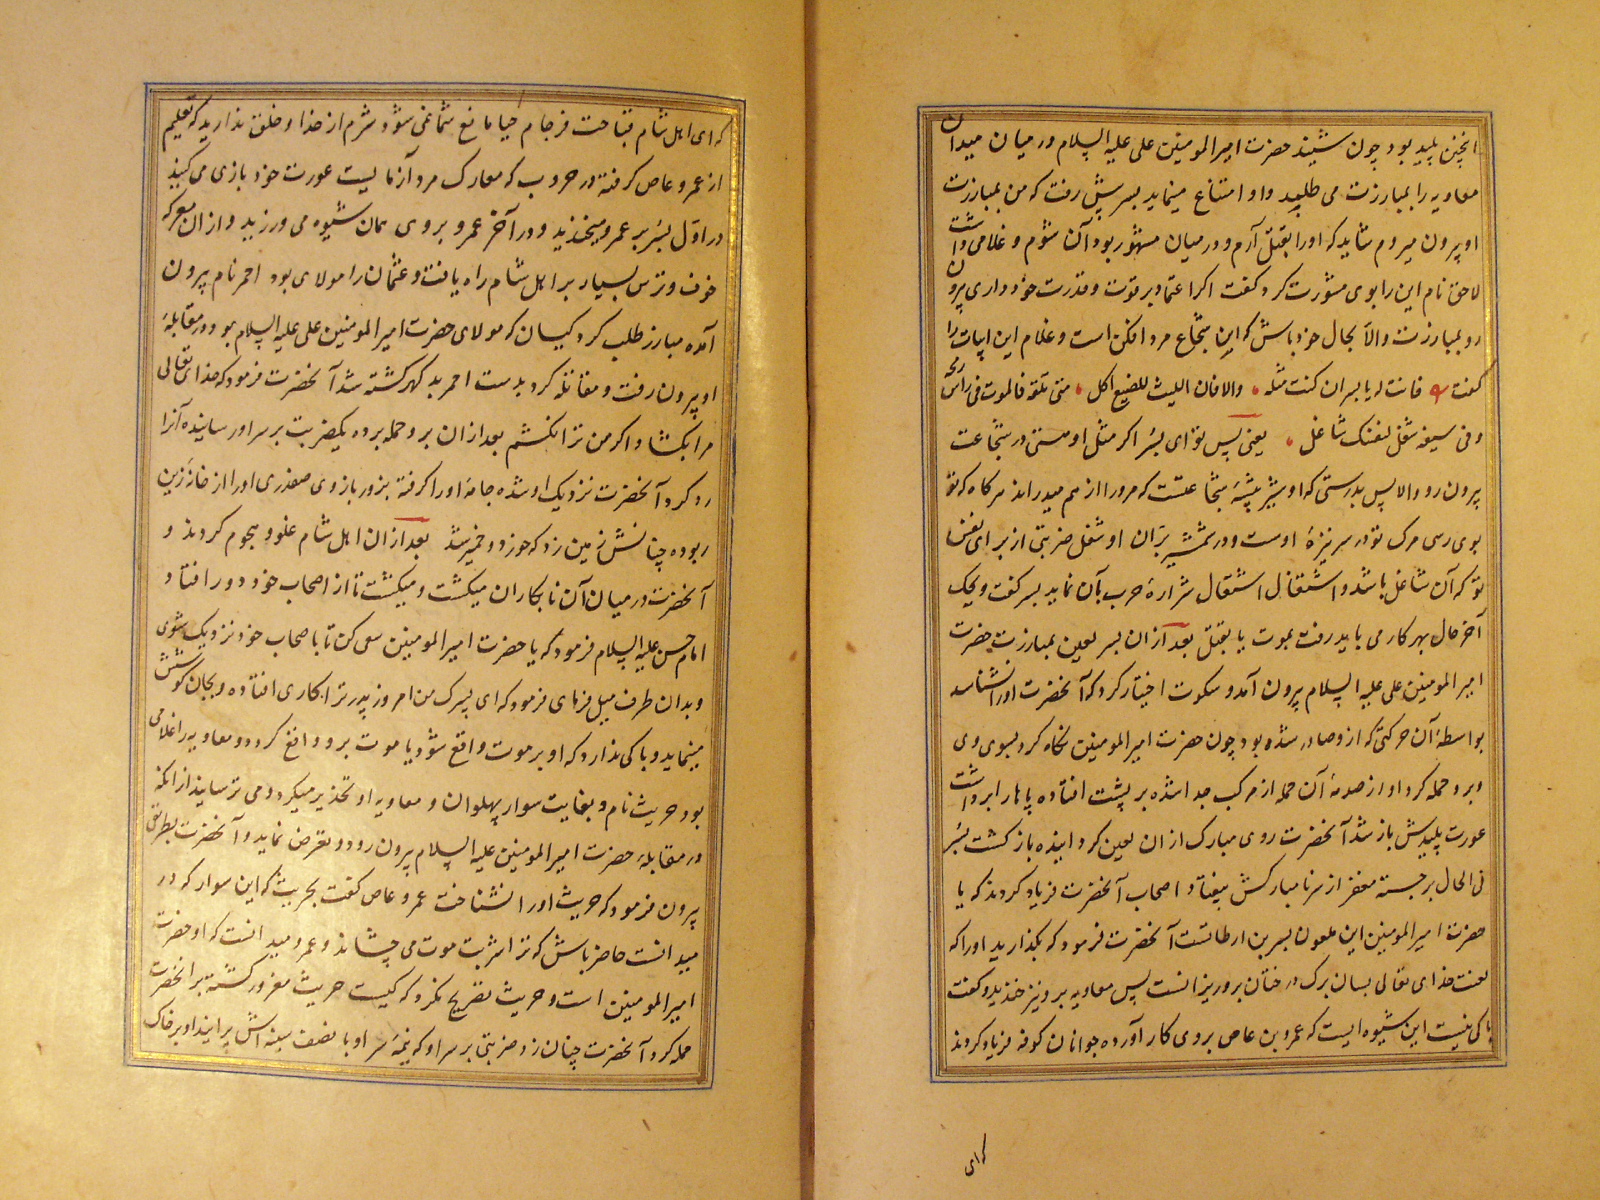 اینچنین پلید بود چون شنید حضرت امیر المومنین علی علیه السلام در میان میدان
معاویه را بمبارزت می طلبد و او امتناع مینماید بسر پیش رفت که من بمبارزت
او بیرون میروم شاید که او را بقتل آرم و در میان مشهور بود آن شوم و غلامی داشت
لاحق نام این را بوی مشورت کرد گفت اگر اعتماد بر قوت و قدرت خود داری بیرون
رو بمبارزت والا بحال خود باش که این شجاع مرد افکن است و غلام این ابیات را
گفت فانت له یا بسر ان کنت مثله والا فان اللیث للضبع اکل متی تلقه فالموت فی راس رمحه
و فی سیفه شغل لنفسک شاغل یعنی پس تو ای بسر اگر مثل او هستی در شجاعت
بیرون رو والا پس بدرستی که او شیر بیشهٔ شجاعتست که مرو را از هم میدراند هر گاه که تو
بوی رسی مرگ تو در سر نیزهٔ اوست و در شمشیر بران او شغل ضربتی از برای نفس
تو که آن شاغل باشد و اشتغال شرارهٔ حرب بآن نماید بسر گفت ویحک
آخر حال بهر کار می باید رفت بموت یا بقتل بعد از ان بسر لعین بمبارزت حضرت
امیر المومنین علی علیه السلام بیرون آمد و سکوت اختیار کرد که آنحضرت او را نشناسد
بواسطهٔ آن حرکتی که از و صادر شده بود چون حضرت امیر المومنین نگاه کرد بسوی وی
و برو حمله کرد او از صدمهٔ آن حمله از مرکب جدا شده بر پشت افتاده پاها را برداشت
عورت پلیدش باز شد آنحضرت روی مبارک از ان لعین گردانیده بازگشت بسر
فی الحال برجسته مغفر از سر نا مبارکش بیفتاد اصحاب آنحضرت فریاد کردند که یا
حضرت امیر المومنین این ملعون بسر بن ارطاتست آنحضرت فرمود که بگذارید او را که
لعنت خدای تعالی بسان برگ درختان برو ریزانست پس معاویه برو نیز خندید و گفت
باکی نیست این شیوه ایست که عمرو بن عاص بروی کار آورده جوانان کوفه فریاد کردند
که ای
که ای اهل شام قباحت فرجام حیا مانع شما نمی شود و شرم از خدا و خلق ندارید که تعلیم
از عمرو عاص گرفته در حروب که معارک مرد آزمائیست عورت خود بازی می کنید
در اول بسر بر عمرو میخندید و در آخر عمرو بروی همان شیوه می ورزید و از ان معرکه
خوف و ترس بسیار بر اهل شام راه یافت و عثمان را مولای بود احمر نام بیرون
آمده مبارز طلب کرد کیسان که مولای حضرت امیر المومنین علی علیه السلام بود در مقابلهٔ
او بیرون رفت و مقاتله کرد بدست احمر بد گهر کشته شد آنحضرت فرمود که خدای تعالی
مرا بکشاد اگر من ترا نکشم بعد از ان برو حمله برده یکضربت بر سر او رسانیده آنرا
رد کرد آنحضرت نزدیک او شده جامهٔ او را گرفته بزور بازوی صفدری او را از خانهٔ زین
ربوده چنانش بزمین زد که خورد و خمیر شد بعد از ان اهل شام غلو و هجوم کردند و
آنحضرت در میان آن نابکاران میگشت و میکشت تا از اصحاب خود دور افتاد
امام حسن علیه السلام فرمود که یا حضرت امیر المومنین سعی کن تا باصحاب خود نزدیک شوی
و بدان طرف میل فرمای فرمود که ای پسرک من امروز پدر ترا کاری افتاده و بجان کوشش
مینماید و باکی ندارد که او بر موت واقع شود یا موت برو واقع گردد و معاویه را غلامی
بود حریث نام و بغایت سوار پهلوان و معاویه او را تحذیر میکرد و می ترسانید از انکه
در مقابلهٔ حضرت امیر المومنین علیه السلام بیرون رود و تعرض نماید و آنحضرت بطریقی
بیرون فرمود که حریث او را نشناخت عمرو عاص گفت بحریث که این سوار که در
میدانست حاضر باش که ترا شربت موت می چشاند و عمرو میدانست که او حضرت
امیر المومنین است و حریث تصریح نکرد که کیست حریث مغرور گشته بر آنحضرت
حمله کرد آنحضرت چنان زد ضربتی بر سر او که نیمهٔ سر او با نصف سینه اش پرانید او بر خاک